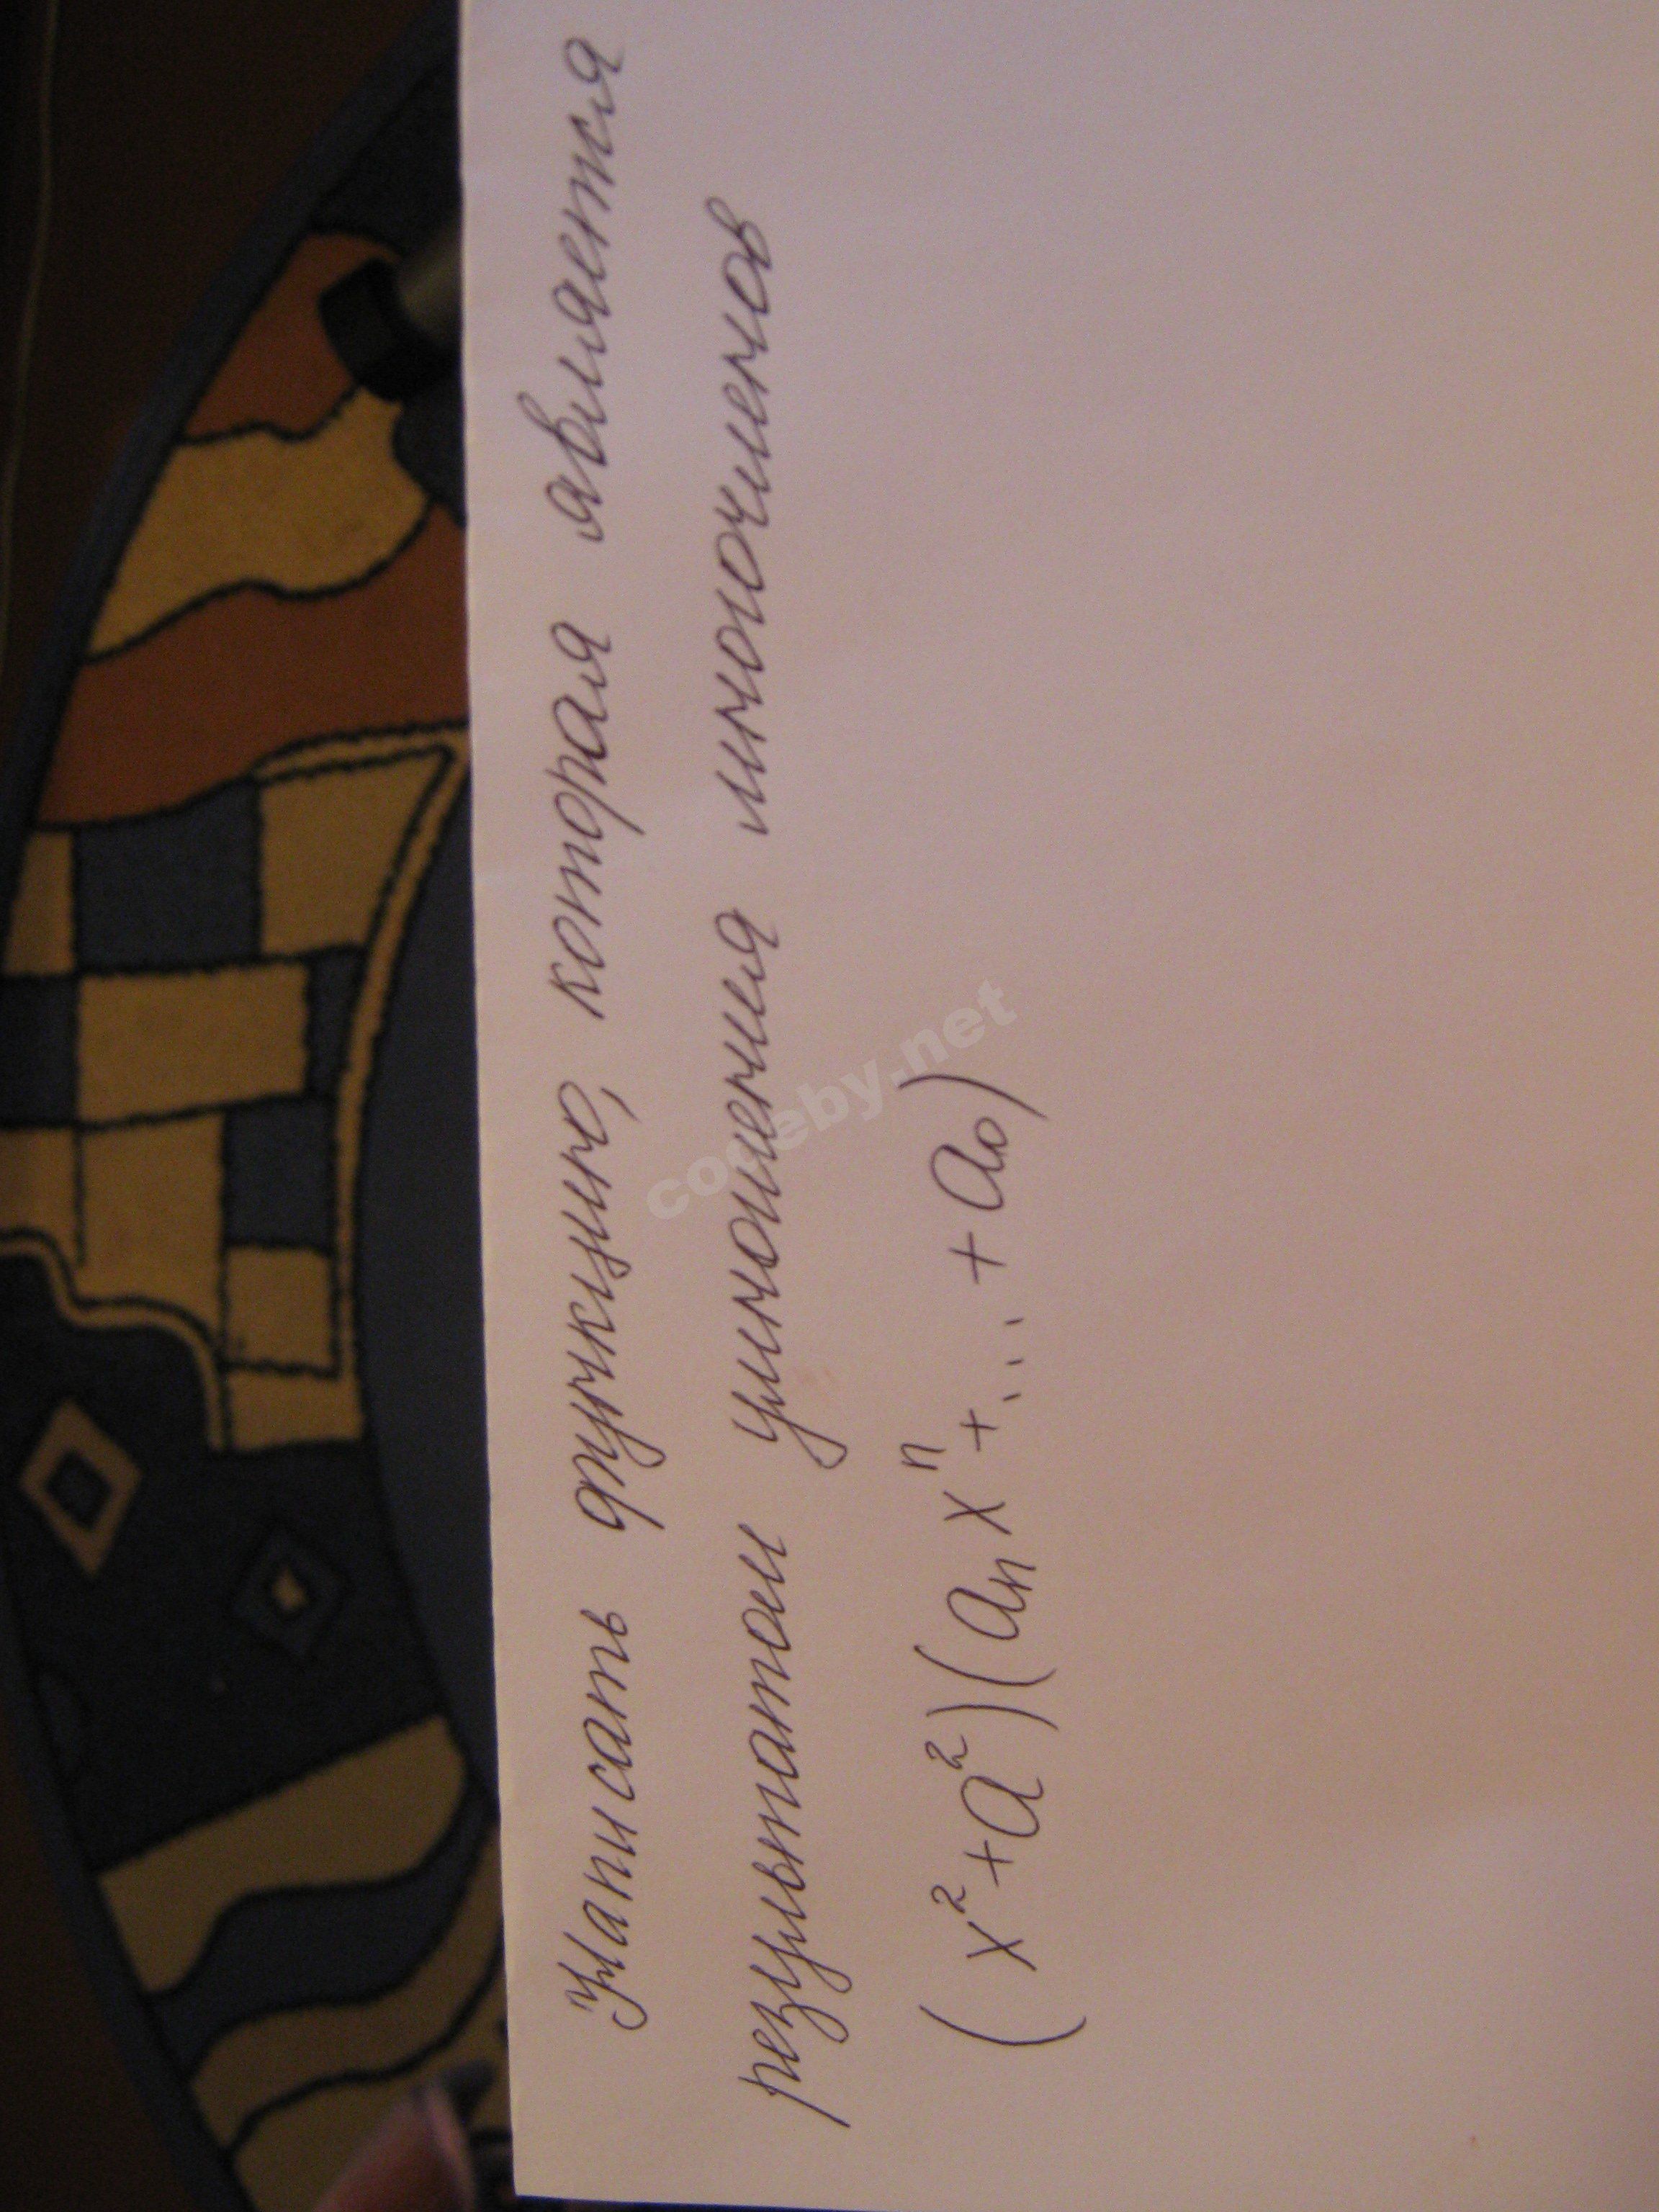 Написать функцию, которая является
результатом умножения многочленов
(x²+a²)(aₙxⁿ+...+a₀)
codeby.net